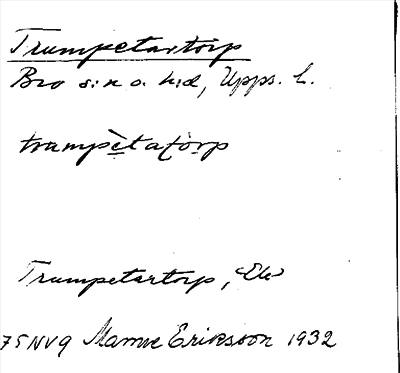 Trumpetartorp
Bro s:n o. h:d, Upps. L.
trumpètatorp
Trumpetartorp, Ek
75NV9 Manne Eriksson 1932